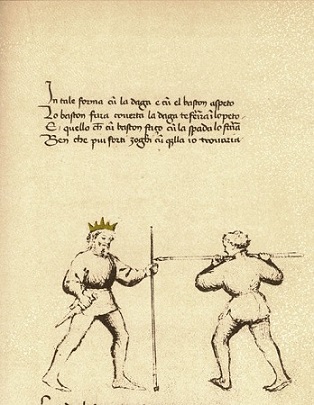 In tale forma cū la daga e cū el baston aspeto
Lo baston fara coverta la daga te ferira ī lo peto.
E quello ch̄ cū baston faço cū la spada lo faria
Ben che piu forti zoghi cū q̄lla io trovaria